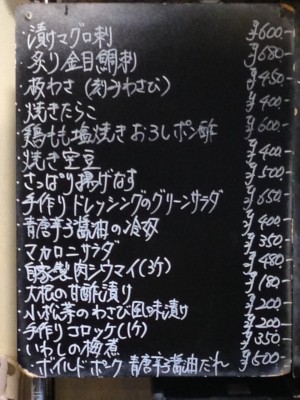 漬けマグロ刺 ¥600-
炙り金目鯛刺 ¥680-
板わさ(刻みわさび) ¥450-
焼きたらこ ¥400-
鶏もも塩焼き おろしポン酢 ¥600-
焼き空豆 ¥400-
さっぱり揚げなす ¥500-
手作りドレッシングのグリーンサラダ ¥650-
青唐辛子醤油の冷奴 ¥400-
マカロニサラダ ¥350-
自家製肉シウマイ(3ケ) ¥480-
大根の甘酢漬け ¥180-
小松菜のわさび風味漬け ¥200-
手作りコロッケ(1ケ) ¥200-
いわしの梅煮 ¥350-
ボイルドポーク 青唐辛子醤油だれ ¥500-